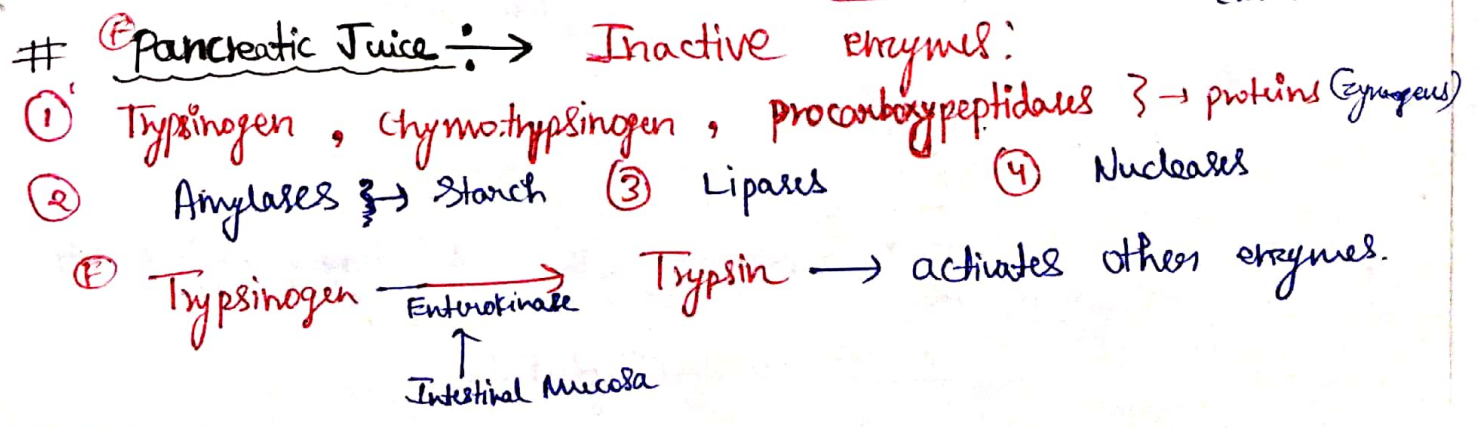 # Ⓕ Pancreatic Juice ÷→ Inactive enzymes:
① Trypsinogen , Chymo.trypsinogen , procarboxypeptidases } → proteins (Zymogens)
② Amylases } → Starch ③ Lipases ④ Nucleases
Ⓕ Trypsinogen → Trypsin → activates other enzymes.
Enterokinase
↑
Intestinal Mucosa